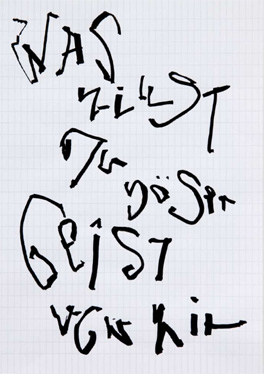 WAS
WILLST
DU
BÖSER
GEIST
VON MIR